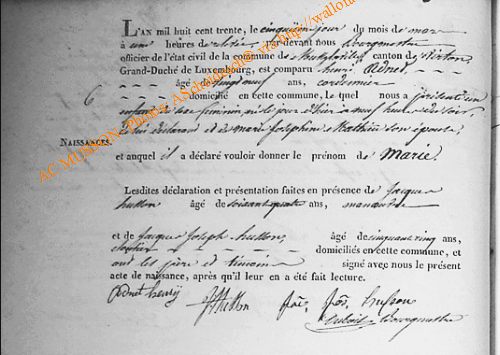 L'AN mil huit cent trente, le cinquième jour du mois de mars
à une heures de relevée par-devant nous Bourgmestre
officier de l'état civil de la commune de canton de Virton
Grand-Duché de Luxembourg, est comparu henri Adnet
âgé de vingt neuf ans, cordonnier
6
domicilié en cette commune, le quel nous a présenté un
enfant de sexe feminin né le jour d'hier à neuf heures du soir,
de lui déclarant et de marie Josephine Mathieu son épouse
NAISSANCES.
et auquel il a déclaré vouloir donner le prénom de Marie.
Lesdites déclaration et présentation faites en présence de Jacques
hutton âgé de soixante quatre ans, manœuvre
et de Jacques Joseph hutton, âgé de cinquante cinq ans,
cloutier domiciliés en cette commune, et
ont les père et témoins signé avec nous le présent
acte de naissance, après qu'il leur en a été fait lecture.
Adnet henry JHutton jos. husson
Bourgmestre
AC MUSSON